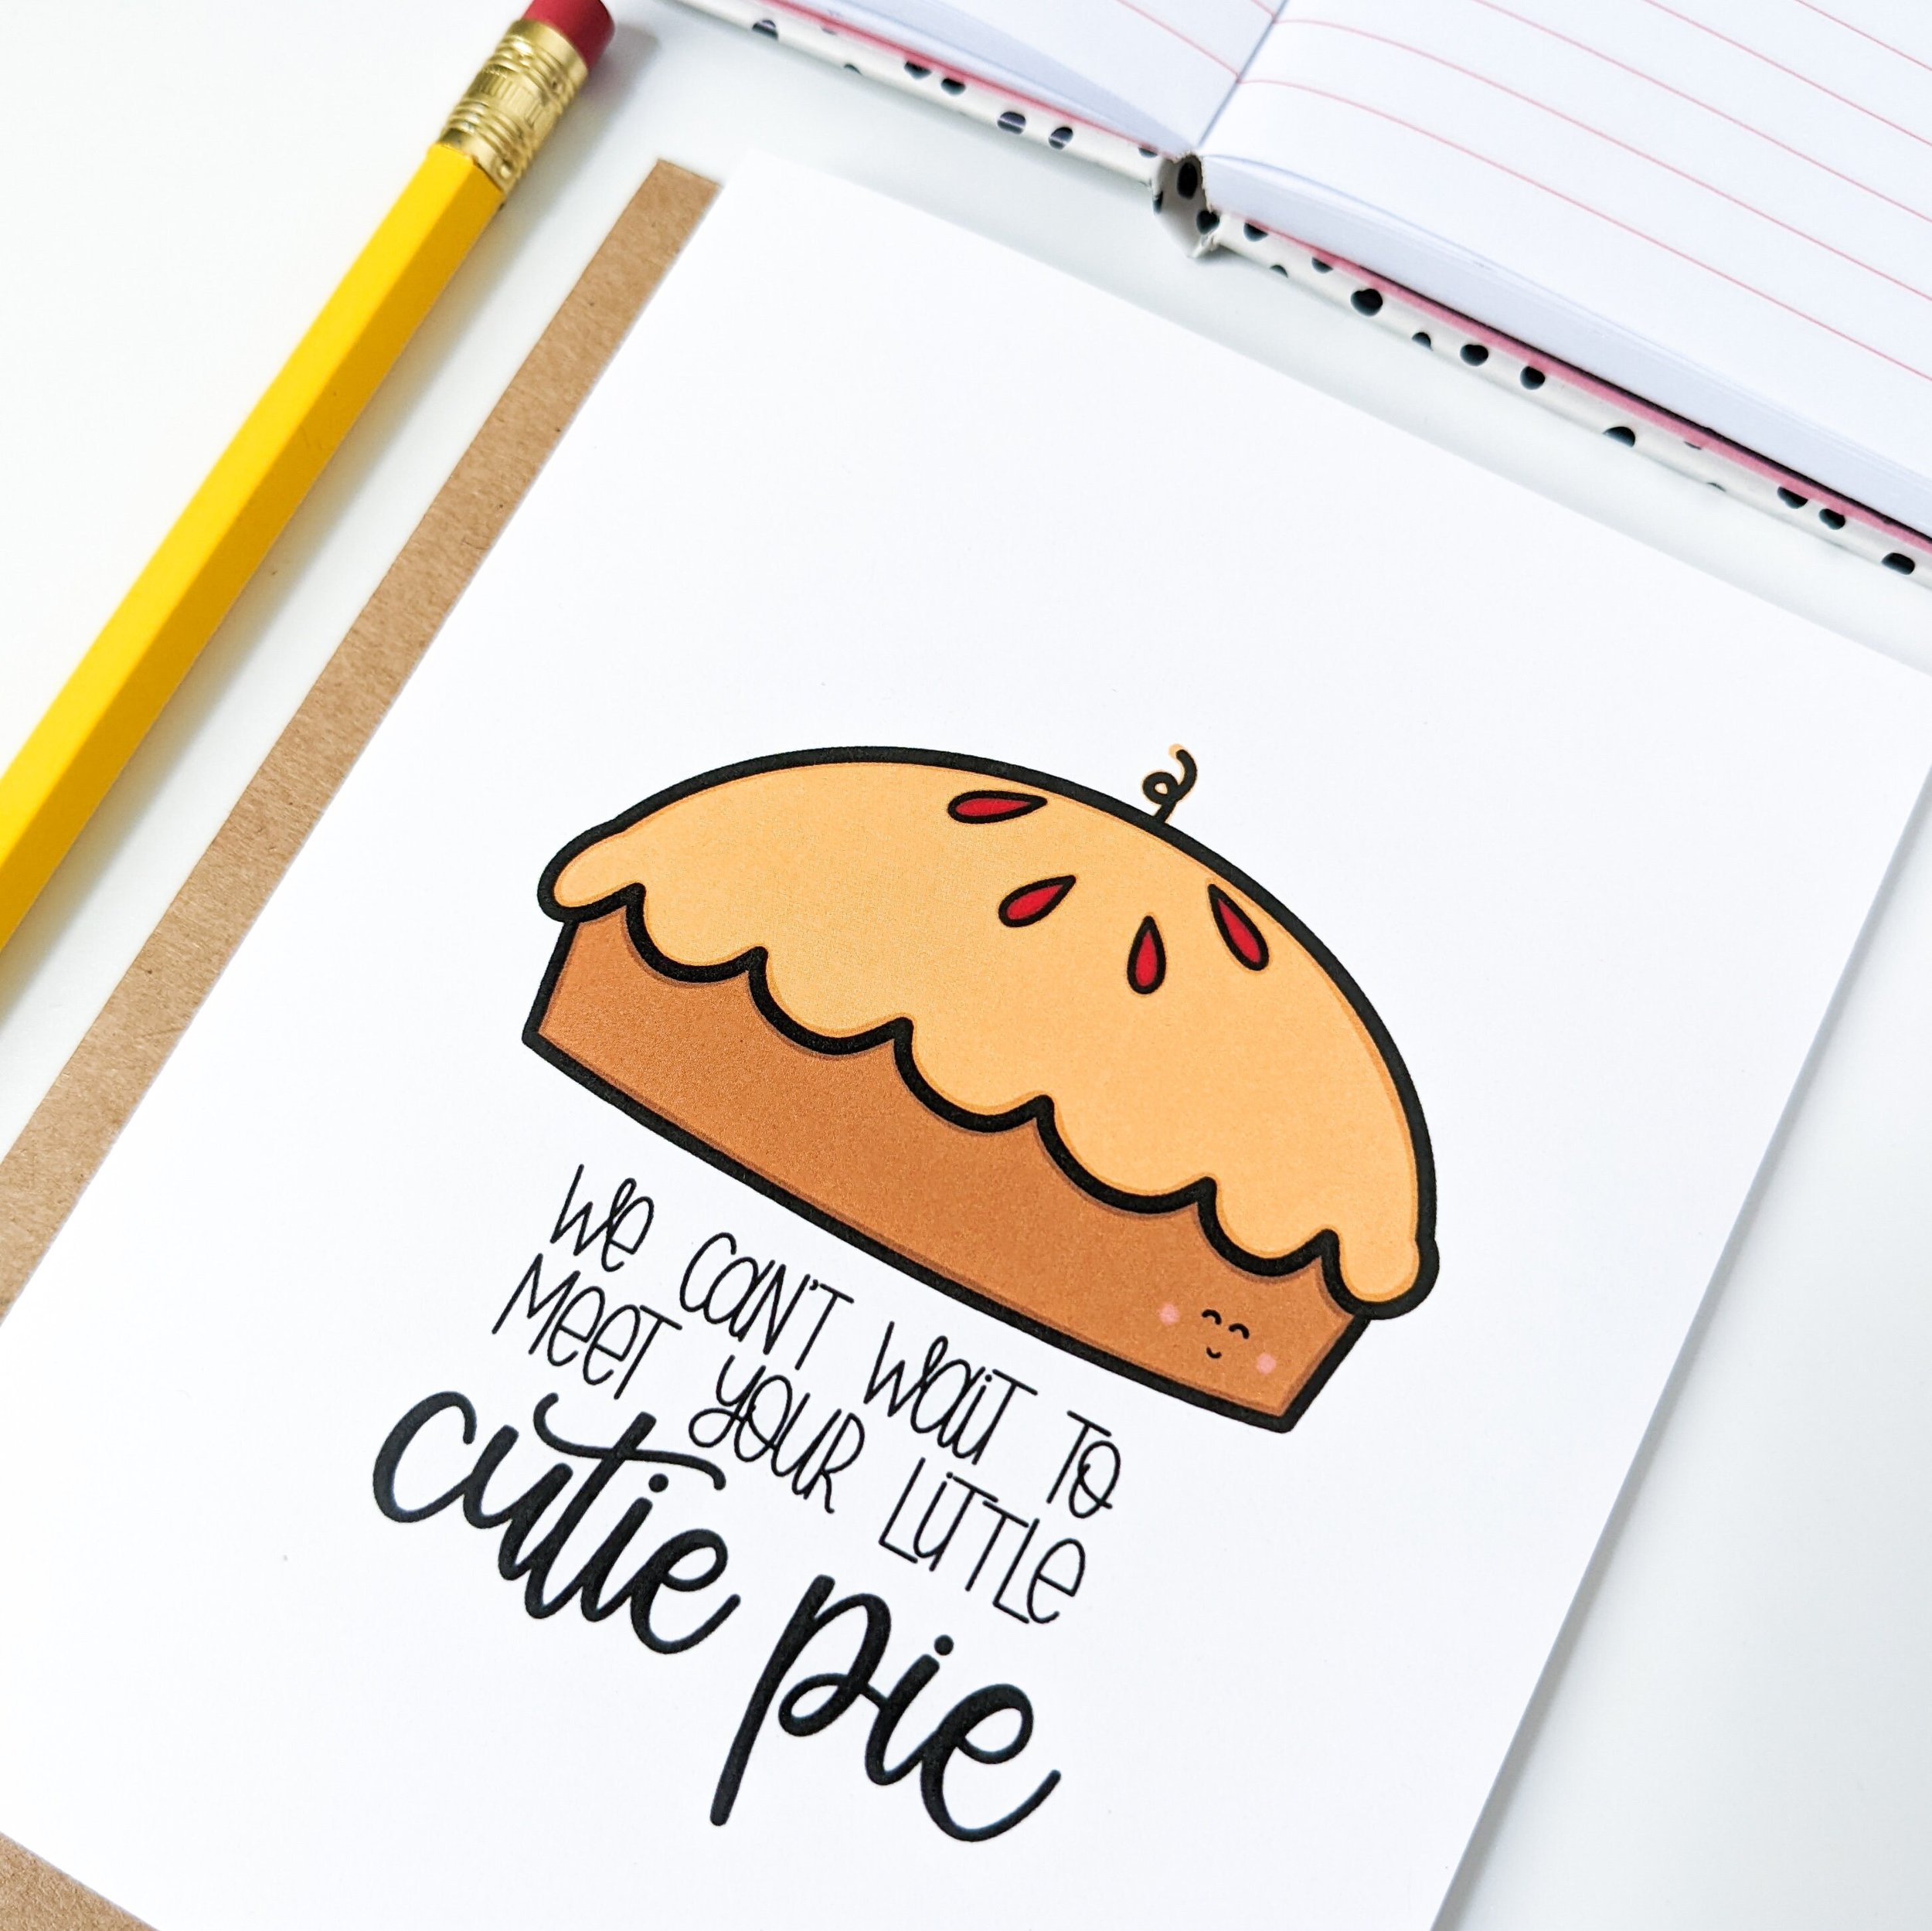 We can't wait to
meet your little
cutie pie